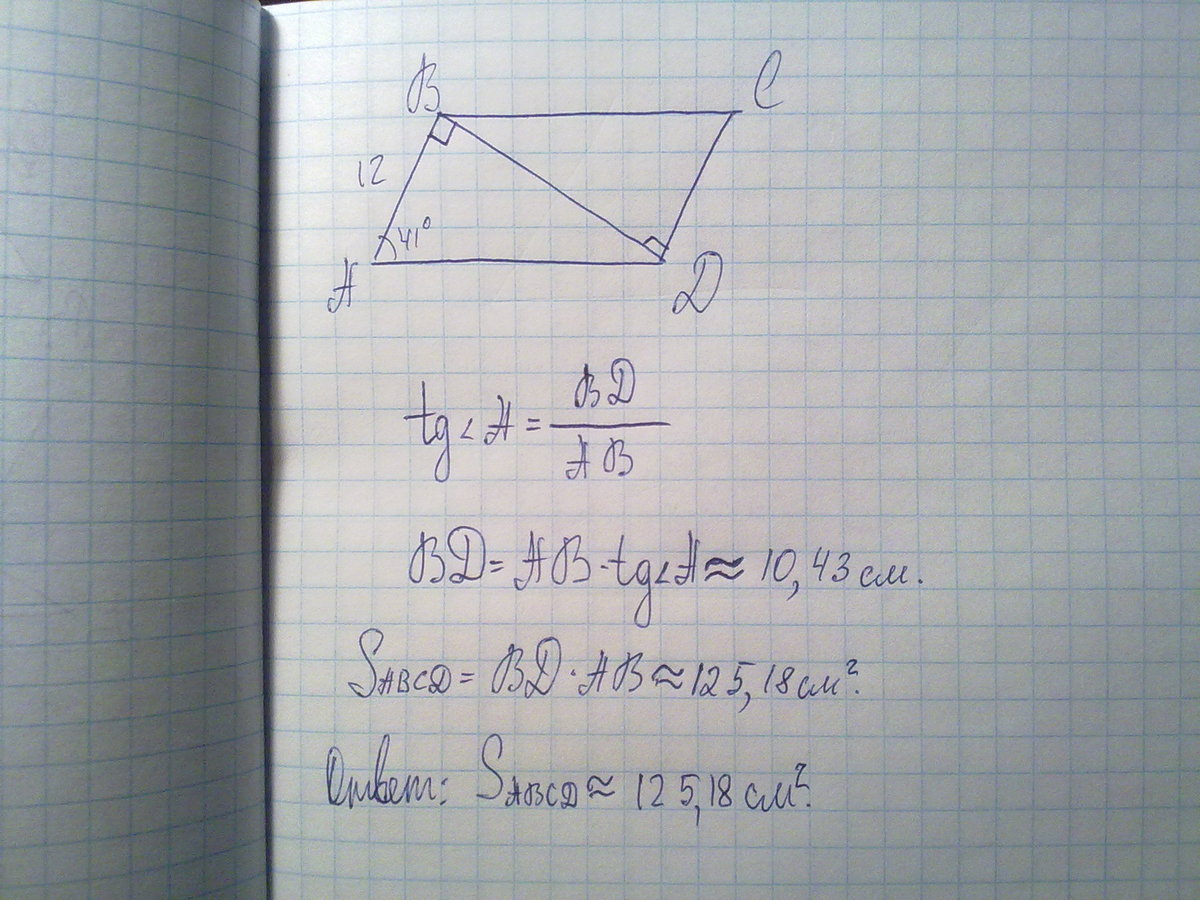 B C
12
41°
A D
tg<A = BD/AB
BD = AB·tg<A ≈ 10,43 см.
SABCD = BD·AB ≈ 125,18 см².
Ответ: SABCD ≈ 125,18 см².